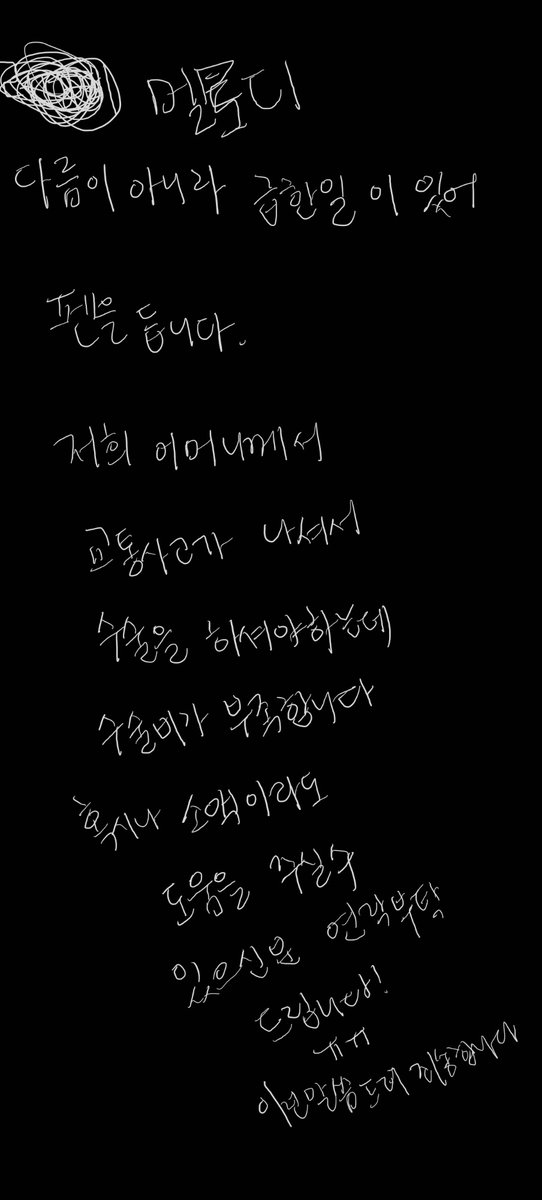 멀록디
다름이 아니라 급한일 이 있어
펜을 듭니다.
저희 어머니께서
교통사고가 나셔서
수술을 하셔야하는데
수술비가 부족합니다
혹시나 소액이라도
도움을 주실수
있으신분 연락부탁
드립니다!
ㅠㅠ
이런말씀드려 죄송합니다